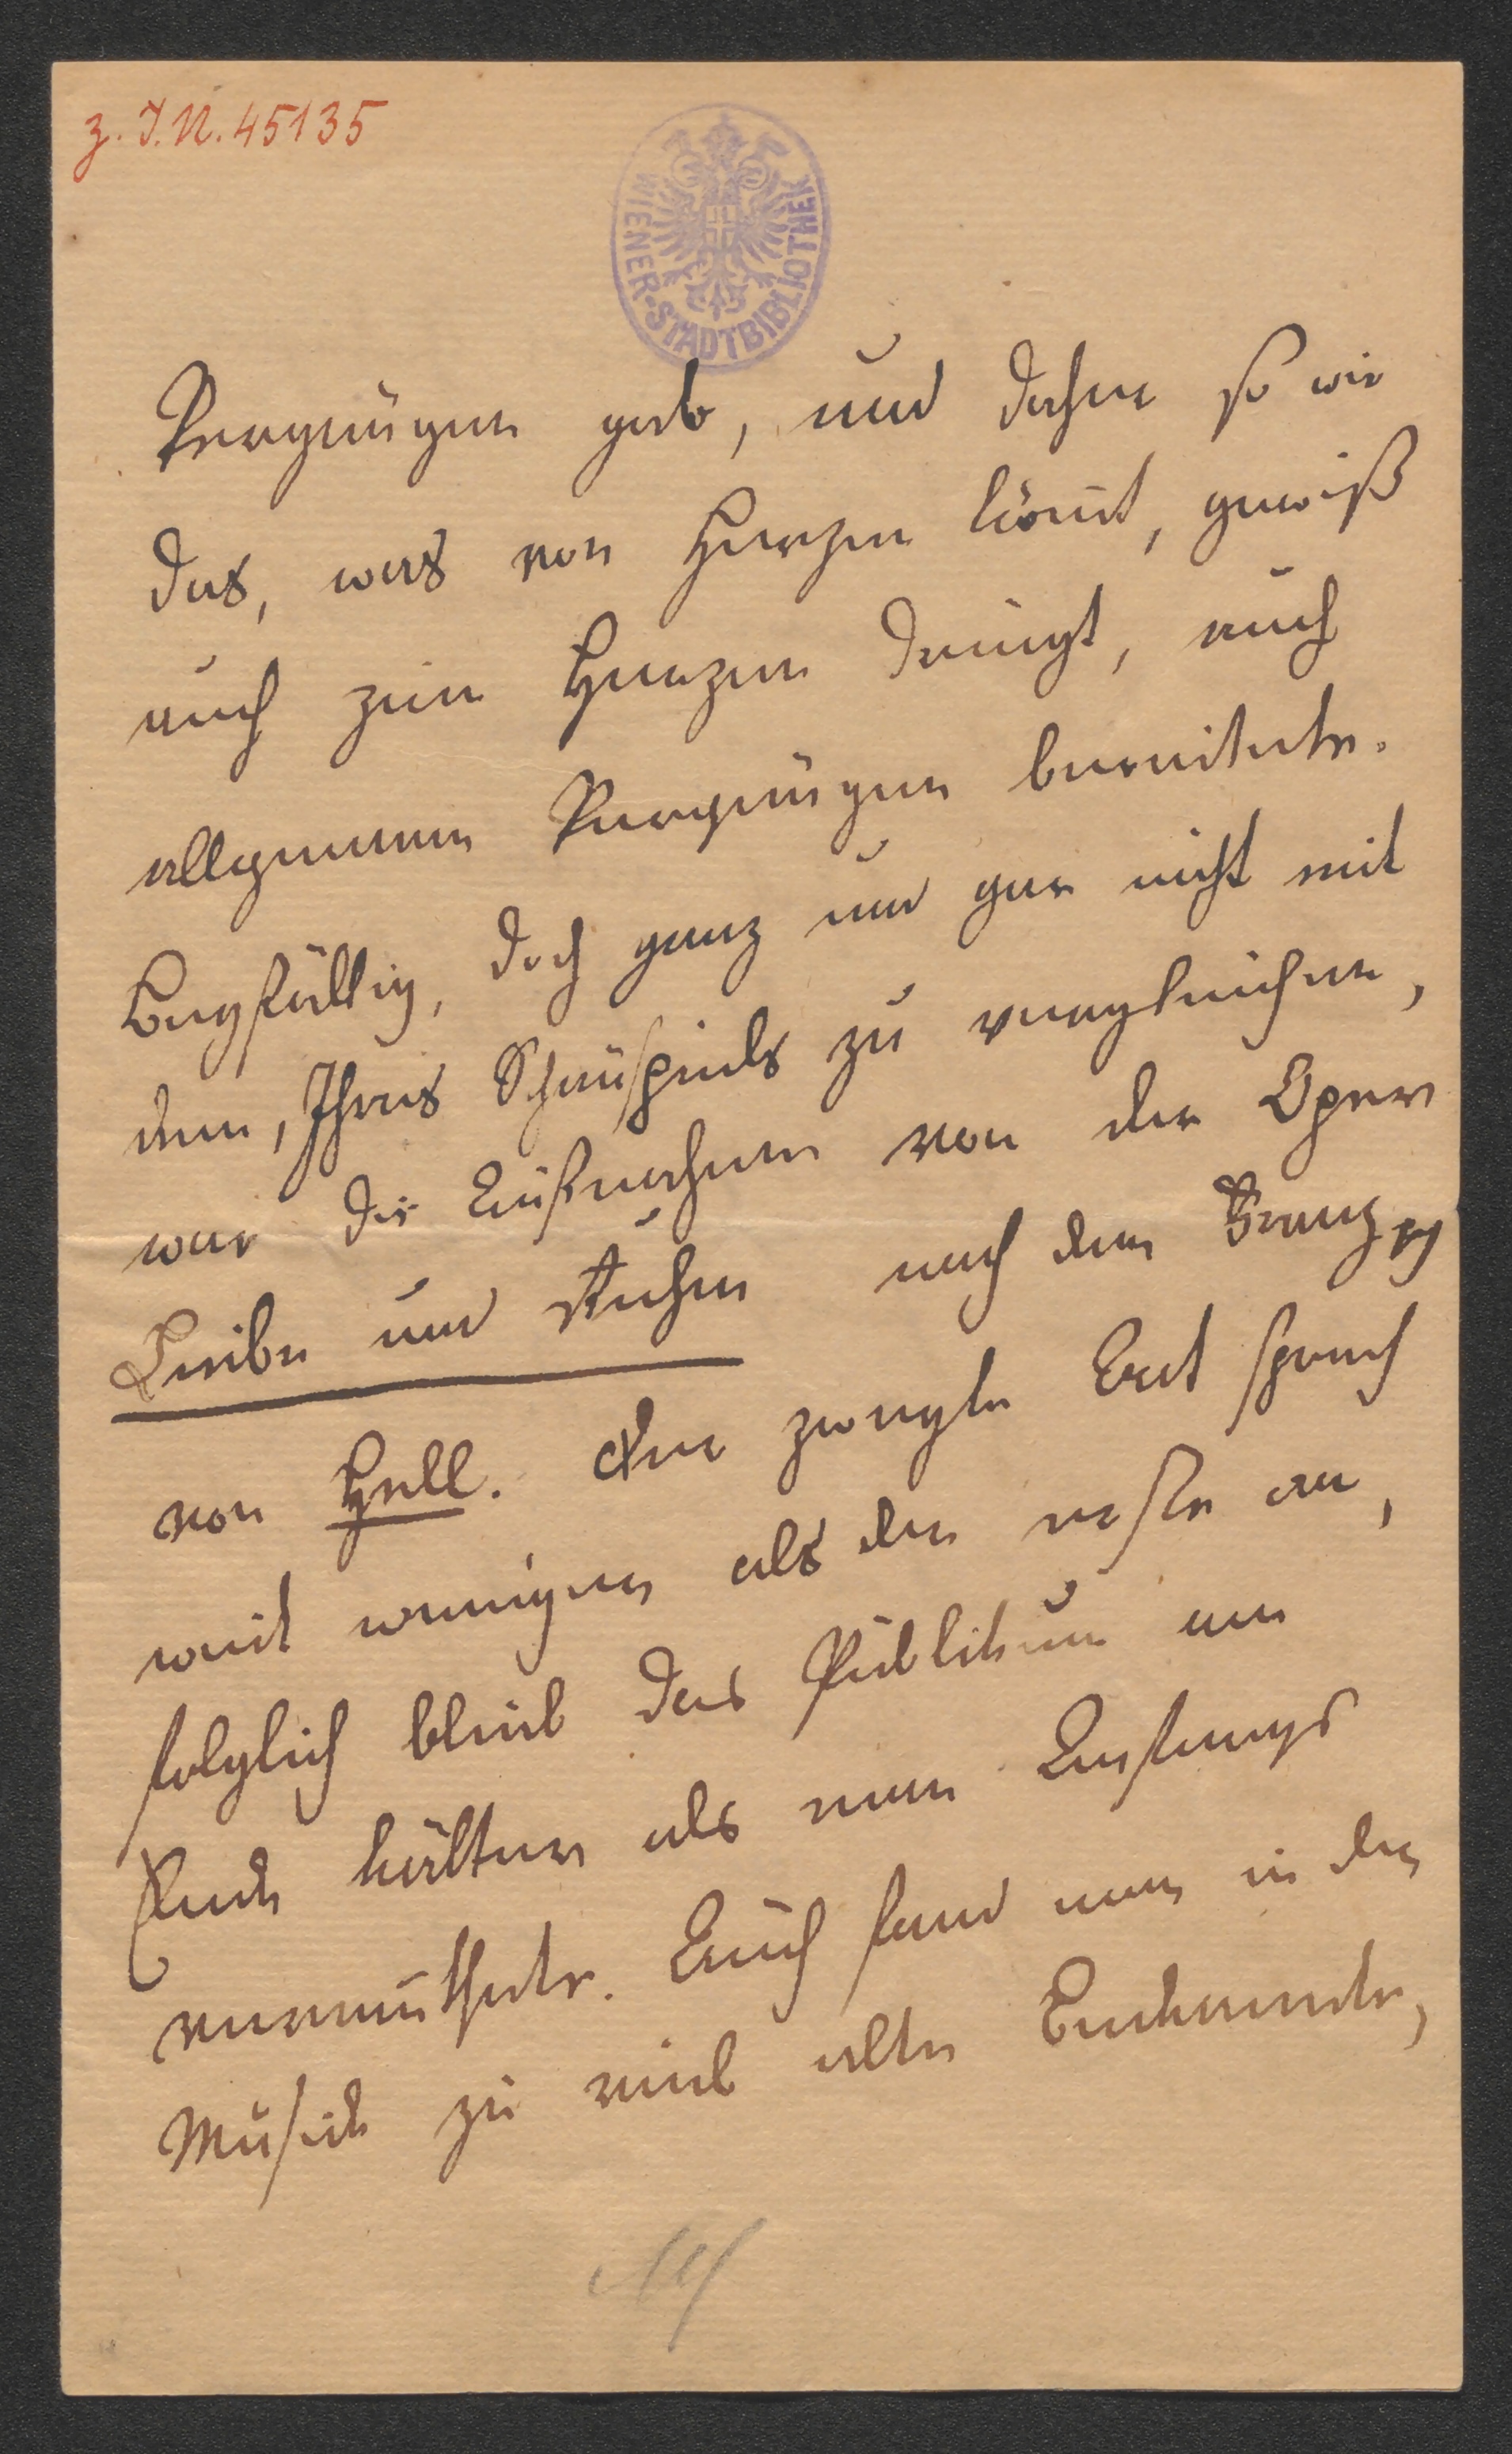 z. I.N. 45135
WIENER-STADTBIBLIOTHEK
Vergnügen gab, und daher so wie
das, was von Herzen kom̄t, gewiß
auch zum Herzen dringt, auch
allgemein Vergnügen bereitete.
Beyfällig, doch ganz und gar nicht mit
dem, Ihres Schauspiels zu vergleichen,
war die Aufnahme von der Oper
Liebe und Ruhm nach dem Franz
von Hell. Der zweyte Act sprach
weit weniger als der erste an,
folglich blieb das Publikum am
Ende kälter als man Anfangs
vermuthete. Auch fand man in der
Musik zu viel alte Bekannte,